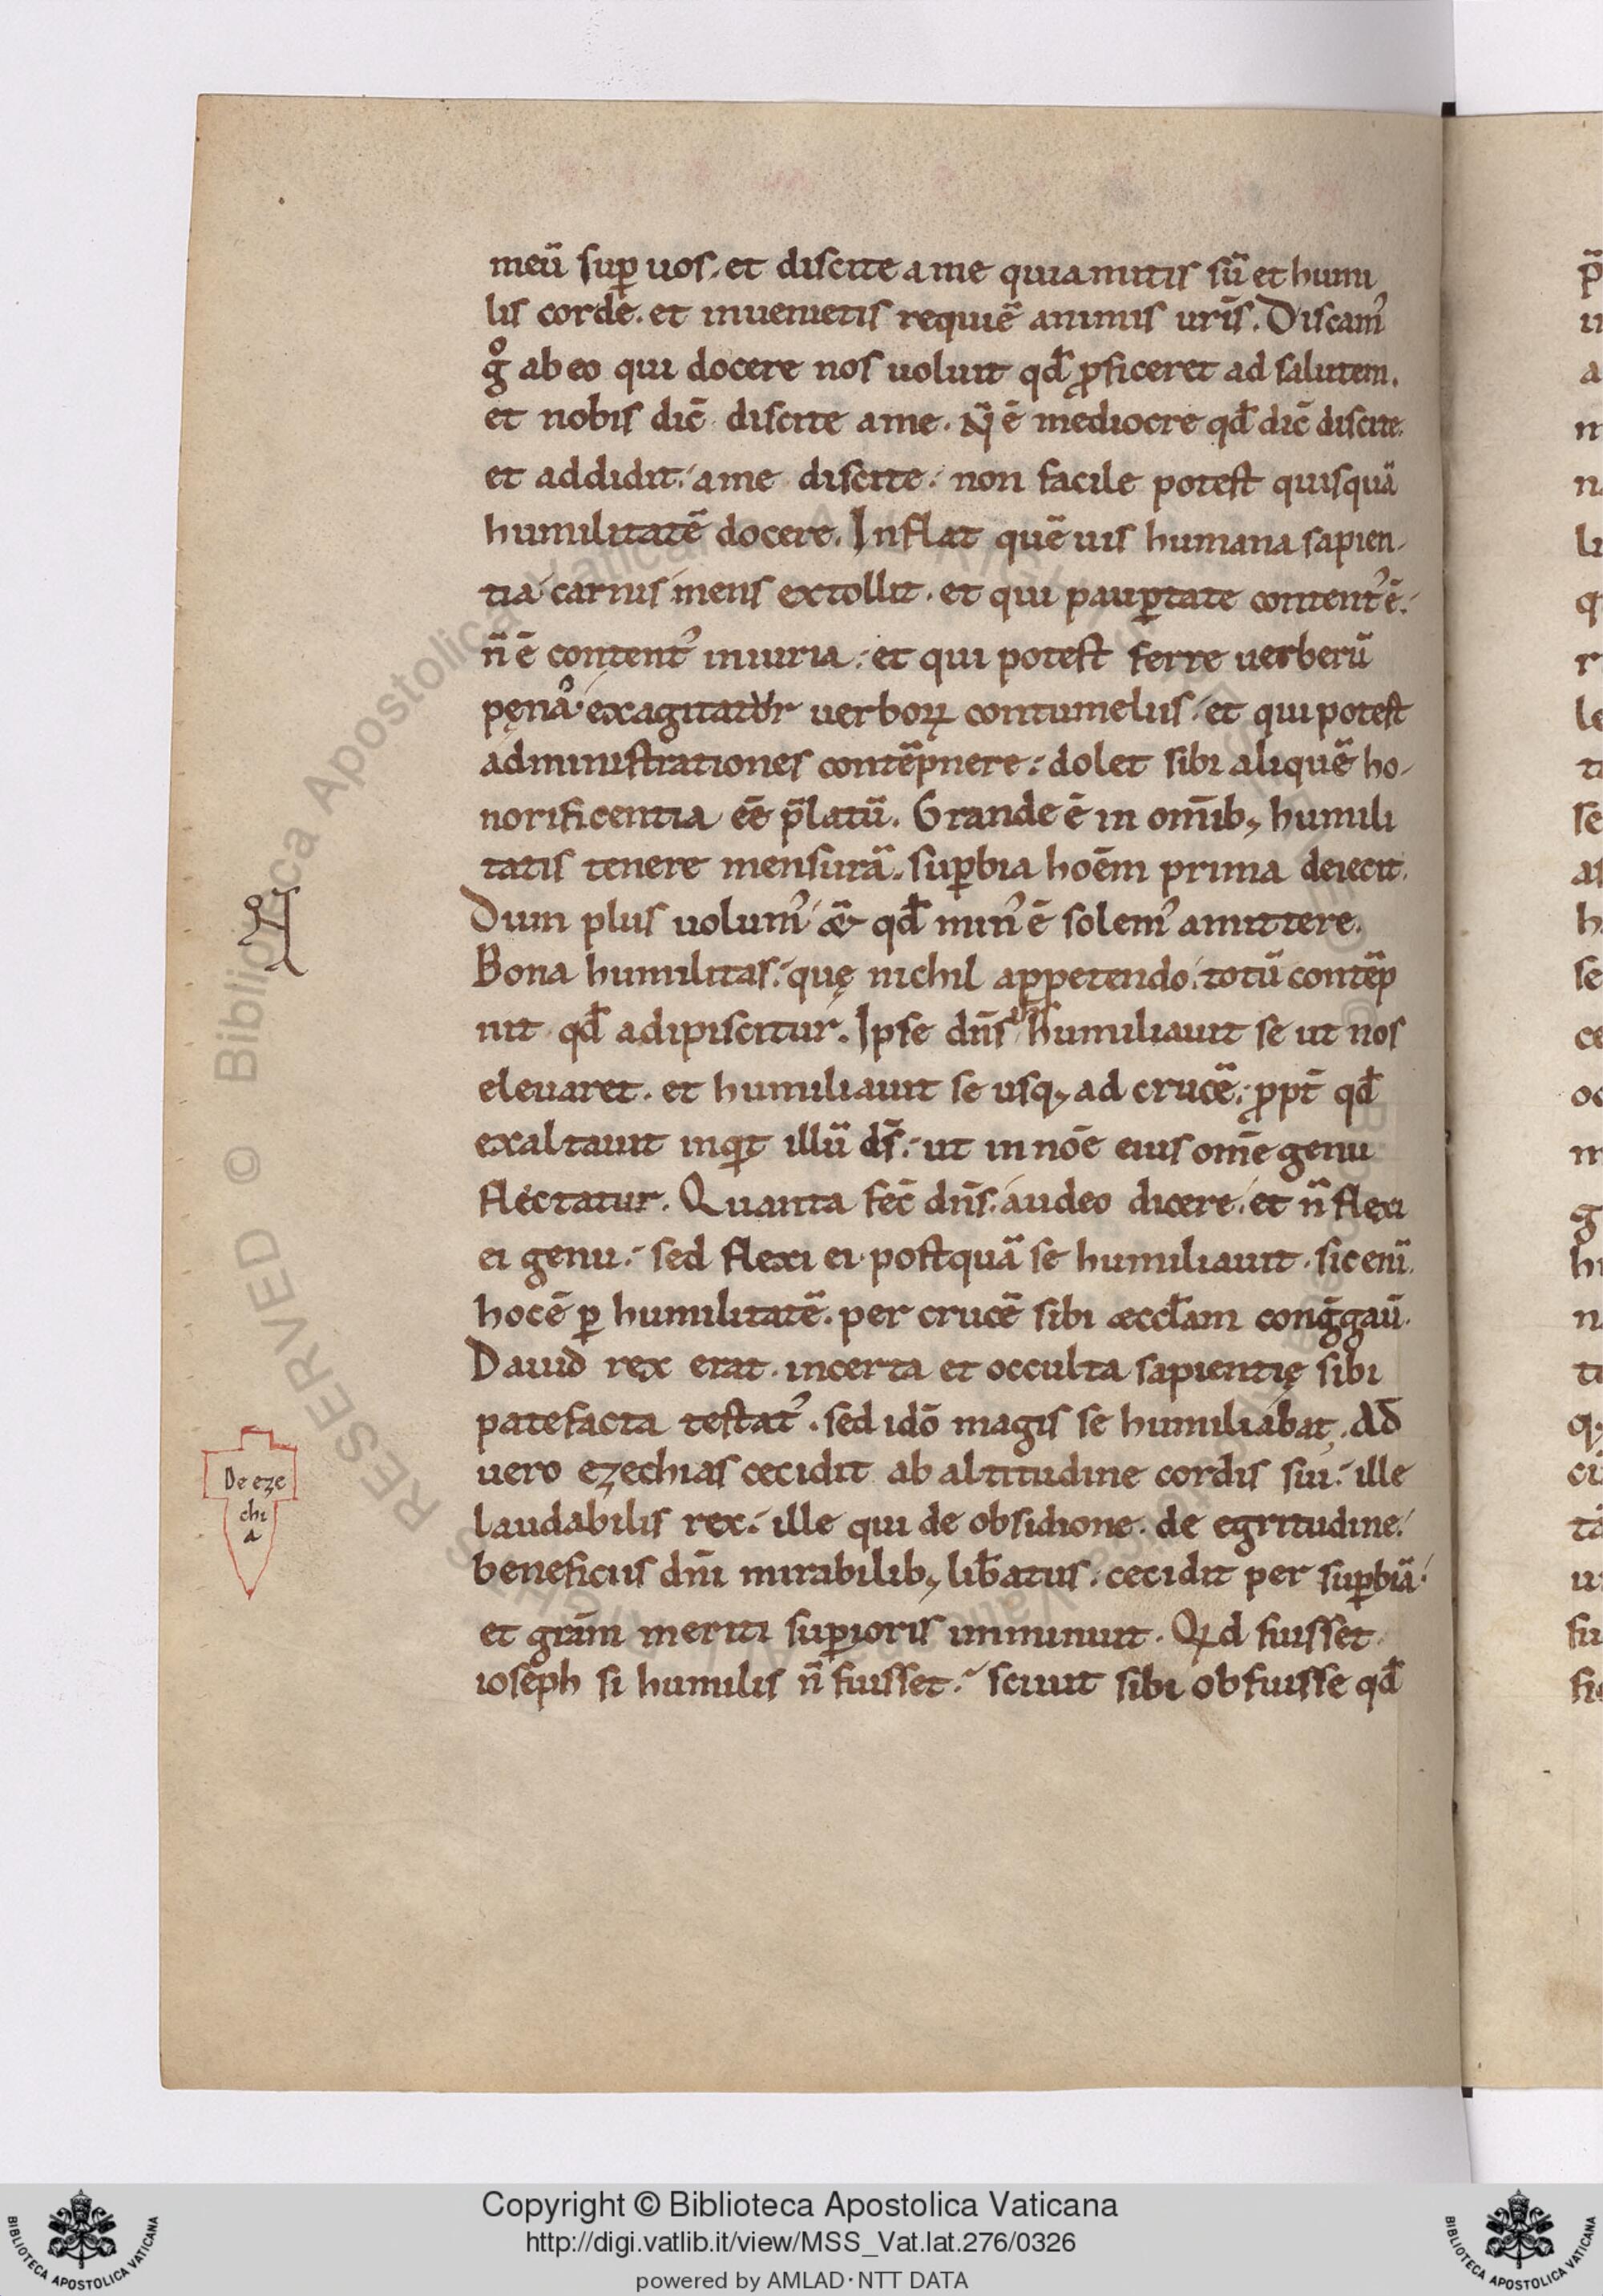 meū sup̱ uos. et discite a me quia mitis sū et humi
lis corde. et inuenietis requiē animis ur̄is. Discam᾽
gͦ ab eo qui docere nos uoluit qd̄ ꝓficeret ad salutem.
et nobis dic̄ discite a me. N̄ ē mediocre qd̄ dic̄ discite.
et addidit. a me discite. non facile potest quisquā
humilitatē docere. Inflat quēuis humana sapien-
tia carnis mens extollit. et qui paup̱tate content᾽ ē.
n̄ ē content᾽ iniuria. et qui potest ferre uerberū
pęnā. exagitatur uerboꝝ contumeliis. et qui potest
administrationes contēpnere. dolet sibi aliquē ho-
norificentia eē p̄latū. Grande ē in om̄ibꝫ humili
tatis tenere mensurā. sup̱bia hoēm prima deiecit.
Dum plus uolum᾽ & qd̄ min᾽ ē solem᾽ amittere.
Bona humilitas. quę nichil appetendo. totū contēp
nit qd̄ adipiscitur. Ipse dn̄s humiliauit se ut nos
eleuaret. et humiliauit se usqꝫ ad crucē. ꝓpt̄ qd̄
exaltauit inqt illū ds̄. ut in noē eius om̄e genu
flectatur. Quanta fec̄ dn̄s. audeo dicere. et n̄ flexi
ei genu. sed flexi ei postquā se humiliauit. sic eni̅.
hoc ē p̱ humilitatē. per crucē sibi æccl̄am congḡgau̅.
Dauid rex erat. incerta et occulta sapientię sibi
patefacta testat᾽. sed idō magis se humiliabat. Ad
uero ezechias cecidit ab altitudine cordis sui. ille
laudabilis rex. ille qui de obsidione. de egritudine.
beneficiis dn̄i mirabilibꝫ lib̄atus. cecidit per sup̱biā.
et grām meriti sup̱ioris imminuit. Qd fuisset
ioseph si humilis n̄ fuisset. sciuit sibi obfuisse qd̄
De eze
chi
a
Copyright © Biblioteca Apostolica Vaticana
http://digi.vatlib.it/view/MSS_Vat.lat.276/0326
powered by AMLAD·NTT DATA
BIBLIOTECA APOSTOLICA VATICANA
BIBLIOTECA APOSTOLICA VATICANA